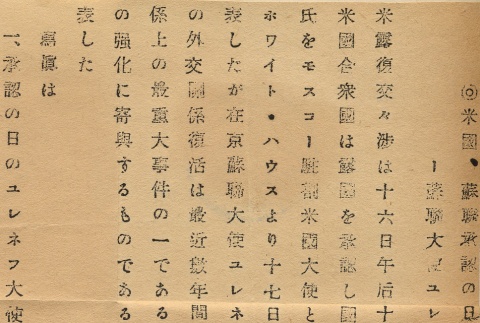 ◎米國、蘇聯承認の日
ー蘇聯大使ユレ
米露復交々渉は十六日午后十
米國合衆國は露國を承認し國
氏をモスコー駐剳米國大使と
ホワイト・ハウスより十七日
表したが在京蘇聯大使ユレネ
の外交關係復活は最近數年間
係上の最重大事件の一である
の强化に寄與するものである
表した
寫眞は
一、承認の日のユレネフ大使